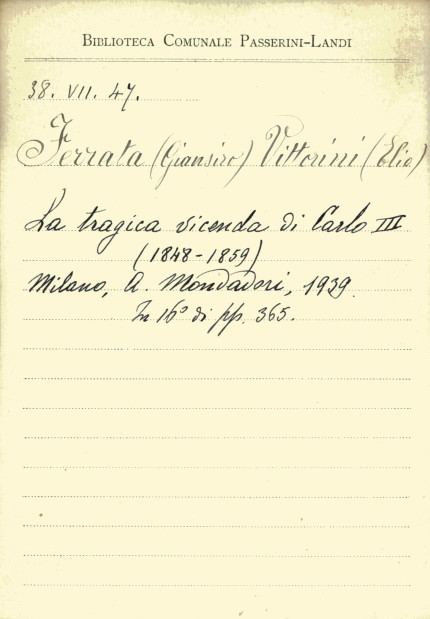 BIBLIOTECA COMUNALE PASSERINI-LANDI
38. VII. 47.
Ferrata (Giansiro) Vittorini (Elio)
La tragica vicenda di Carlo III
(1848-1859)
Milano, A. Mondadori, 1939.
In 16º di pp. 365.